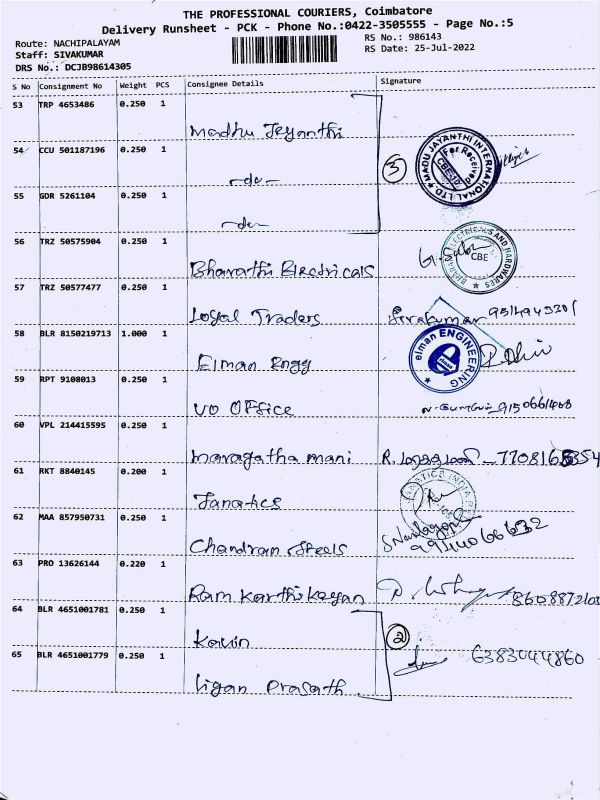 THE PROFESSIONAL COURIERS, Coimbatore
Delivery Runsheet - PCK - Phone No.:0422-3505555 - Page No.:5
Route: NACHIPALAYAM
RS No.: 986143
Staff: SIVAKUMAR
RS Date: 25-Jul-2022
DRS No.: DCJB98614305
S No Consignment No Weight PCS Consignee Details Signature
53 TRP 4653486 0.250 1
Madhu Jeyanthi
54 CCU 501187196 0.250 1
MADU JAYANTHI INTERNATIONAL LTD
3
-do-
55 GDR 5261104 0.250 1
-do-
56 TRZ 50575904 0.250 1
ELECTRICALS AND HARDWARES
CBE
Bharathi Electricals
57 TRZ 50577477 0.250 1
Loyal Traders Sivakumar
58 BLR 8150219713 1.000 1
elman ENGINEERING
Elman Engg
59 RPT 9108013 0.250 1
VO OFFICE
60 VPL 214415595 0.250 1
Maragatha mani
61 RKT 8840145 0.200 1
Fanatics
62 MAA 857950731 0.250 1
Chandran Steels 9944066632
63 PRO 13626144 0.220 1
Ram Karthikeyan
64 BLR 4651001781 0.250 1
Kavin
2
65 BLR 4651001779 0.250 1
6383044860
Ligan Prasath